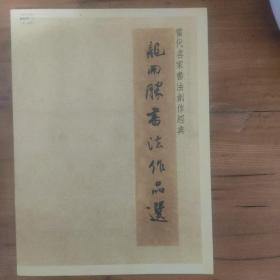 當代名家書法創作經典
龍開勝書法作品選